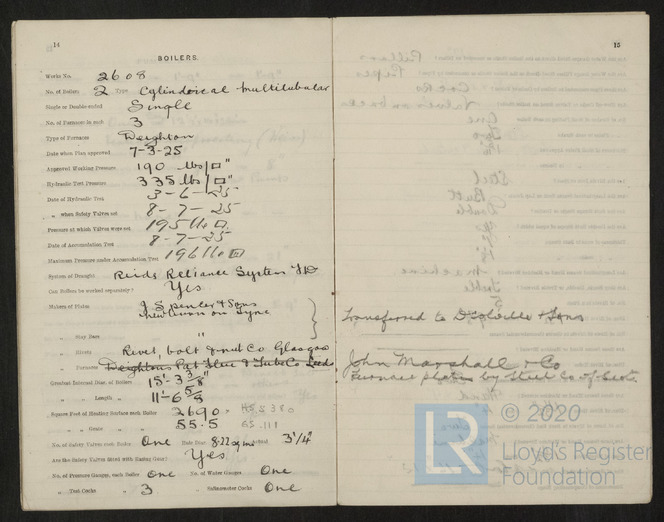 14
BOILERS.
Works No. 2608
No. of Boilers 2 Type Cylindrical multitubular
Single or Double-ended Single
No. of Furnaces in each 3
Type of Furnaces Deighton
Date when Plan approved 7-3-25
Approved Working Pressure 190 lbs/□"
Hydraulic Test Pressure 335 lbs/□"
Date of Hydraulic Test 3-6-25
" when Safety Valves set 8-7-25
Pressure at which Valves were set 195 lb □"
Date of Accumulation Test 8-7-25
Maximum Pressure under Accumulation Test 196 lb □"
System of Draught Reids Reliance System
Can Boilers be worked separately? Yes
Makers of Plates J S penter & Sons
on Tyne
" Stay Bars "
" Rivets Rivet, bolt & nut Co Glasgow
" Furnaces Deightons Pat Flue & Tube Co Leeds
Greatest External Diam. of Boilers 15'-3 3/8"
" " Length " 11'-6 5/8
Square Feet of Heating Surface each Boiler 2690
" " Grate " " 55.5
No. of Safety Valves each Boiler One Rule Diam. 8.22 sq ins Actual 3 1/4"
Are the Safety Valves fitted with Easing Gear? Yes
No. of Pressure Gauges, each Boiler One No. of Water Gauges One
" Test Cocks " 3 " Salinometer Cocks One
15
Transferred to & Sons
John Marshall & Co
Furnace plates by Steel Co of Scot.
LR
© 2020
Lloyd's Register
Foundation